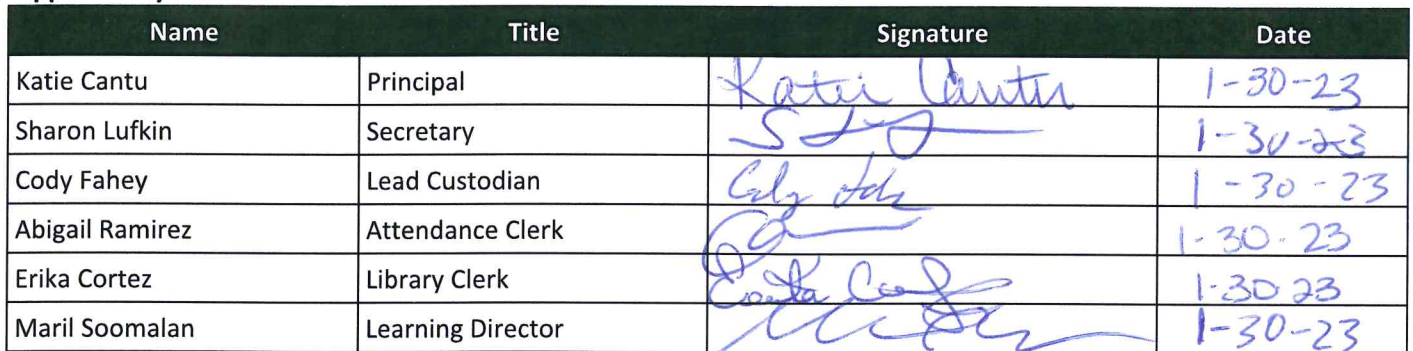 Name Title Signature Date
Katie Cantu Principal Katie Cantu 1-30-23
Sharon Lufkin Secretary 1-30-23
Cody Fahey Lead Custodian 1-30-23
Abigail Ramirez Attendance Clerk 1-30-23
Erika Cortez Library Clerk 1-30-23
Maril Soomalan Learning Director 1-30-23